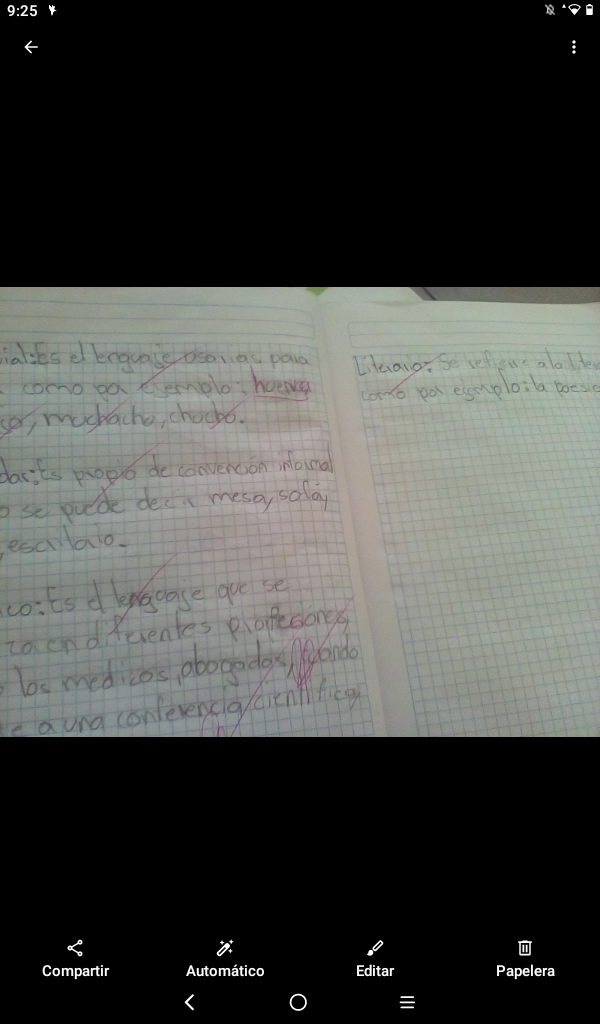 9:25
ial:Es el lenguaje usarlas para
como por ejemplo: hueva
muchacho, chucho.
Es propio de convención informal
o se puede decir mesa, sofá,
escritorio.
ico: Es el lenguaje que se
en diferentes profesiones,
los medicos, abogados,
a una conferencia cientifica
Literario: Se refiere a la
como por ejemplo: la
Compartir
Automático
Editar
Papelera